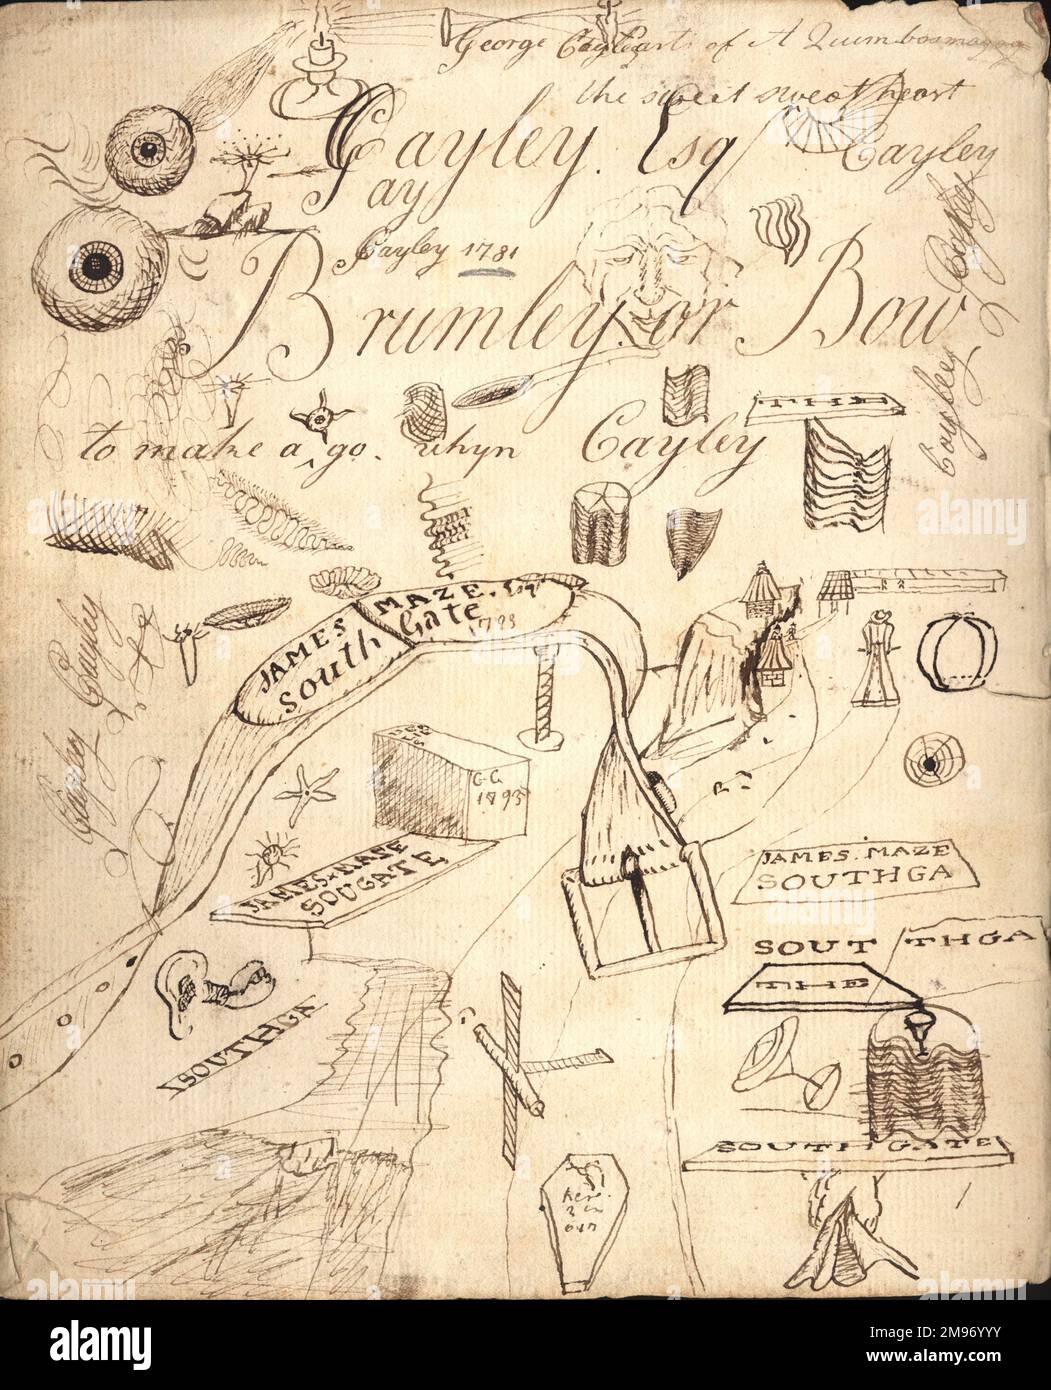 George Cayle arts of A Quimboamagog
the sweet sweet heart
Cayley. Esq
Cayley
Cay
Cayley 1781
Cayley
Brumley. or Bow
Cayley
to make a go. whyn Cayley
THE
JAMES MAZE. Esqr
South Gate
1793
Cayley
Cayley
G.C.
1893
JAMES MAZE
SOUGATE
JAMES. MAZE
SOUTHGA
SOUT THGA
THE
SOUTHGA
SOUTHGATE
here.
alamy
Image ID: 2M96YYY
www.alamy.com